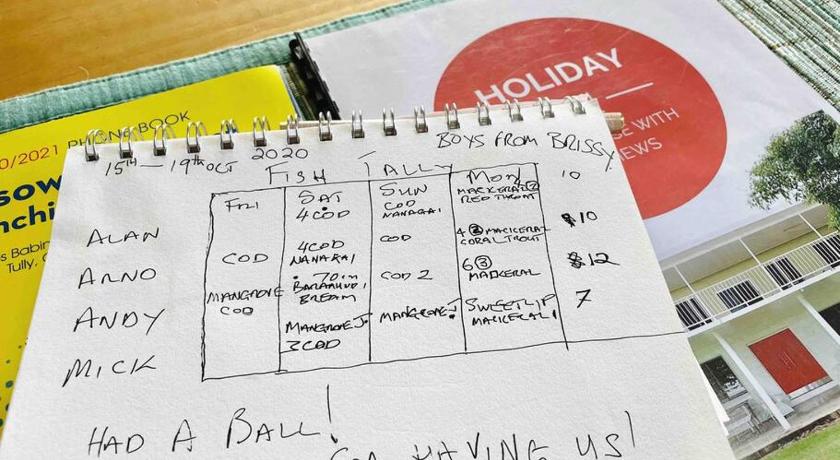 HOLIDAY
SE WITH
EWS
0/2021 PHONE BOOK
sow
nchi
s Babin
Tully,
15TH — 19TH OCT 2020
BOYS FROM BRISSY
FISH TALLY
FRI SAT SUN MON
ALAN 4 COD COD NANAGAI MACKERAL 2 RED THROAT 10
ARNO COD 4 COD NANAGAI COD 4 2 MACKERAL CORAL TROUT 10
ANDY MANGROVE COD 70cm BARAMUNDI BREAM COD 2 6 3 MACKERAL 12
MICK MANGROVE J. 3 COD MANGROVE J SWEETLIP MACKERAL 1 7
HAD A BALL!
FOR HAVING US!